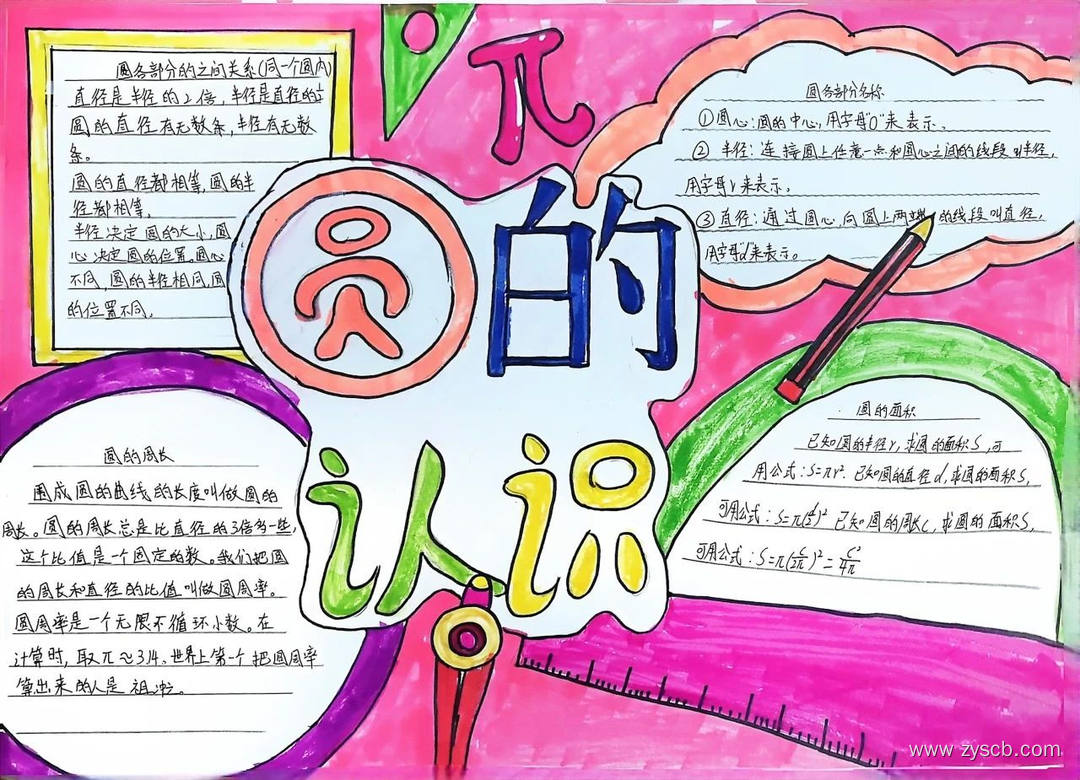 圆各部分的之间关系(同一个圆内)
直径是半径的2倍,半径是直径的1/2
圆的直径有无数条,半径有无数
条。
圆的直径都相等,圆的半
径都相等,
半径决定圆的大小,圆
心决定圆的位置。圆心
不同,圆的半径相同,圆
的位置不同,
π
圆各部分名称
①圆心:圆的中心,用字母"O"来表示。
②半径:连接圆上任意一点和圆心之间的线段叫半径,
用字母r来表示。
③直径:通过圆心,向圆上两端的线段叫直径,
用字母d来表示。
圆的
认识
圆的周长
围成圆的曲线的长度叫做圆的
周长。圆的周长总是比直径的3倍多一些,
这个比值是一个固定的数。我们把圆
的周长和直径的比值叫做圆周率。
圆周率是一个无限不循环小数。在
计算时,取π≈3.14。世界上第一个把圆周率
算出来的人是祖冲。
圆的面积
已知圆的半径r,求圆的面积S,可
用公式:S=πr².已知圆的直径d,求圆的面积S,
可用公式:S=π(d/2)²已知圆的周长c,求圆的面积S,
可用公式:S=π(C/2π)²=C²/4π
www.zyscb.com